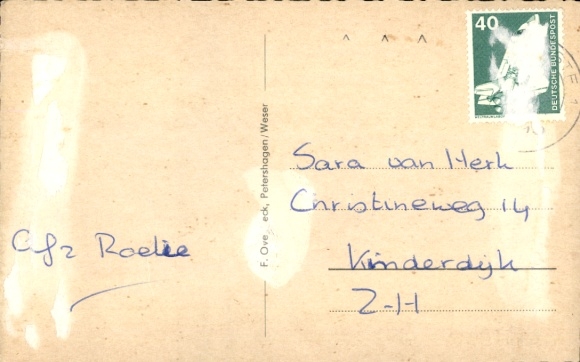 40
DEUTSCHE BUNDESPOST
F. Ove eck, Petershagen/Weser
Sara van Herk
Christineweg 14
Kinderdijk
Z-H
Afz Roelie